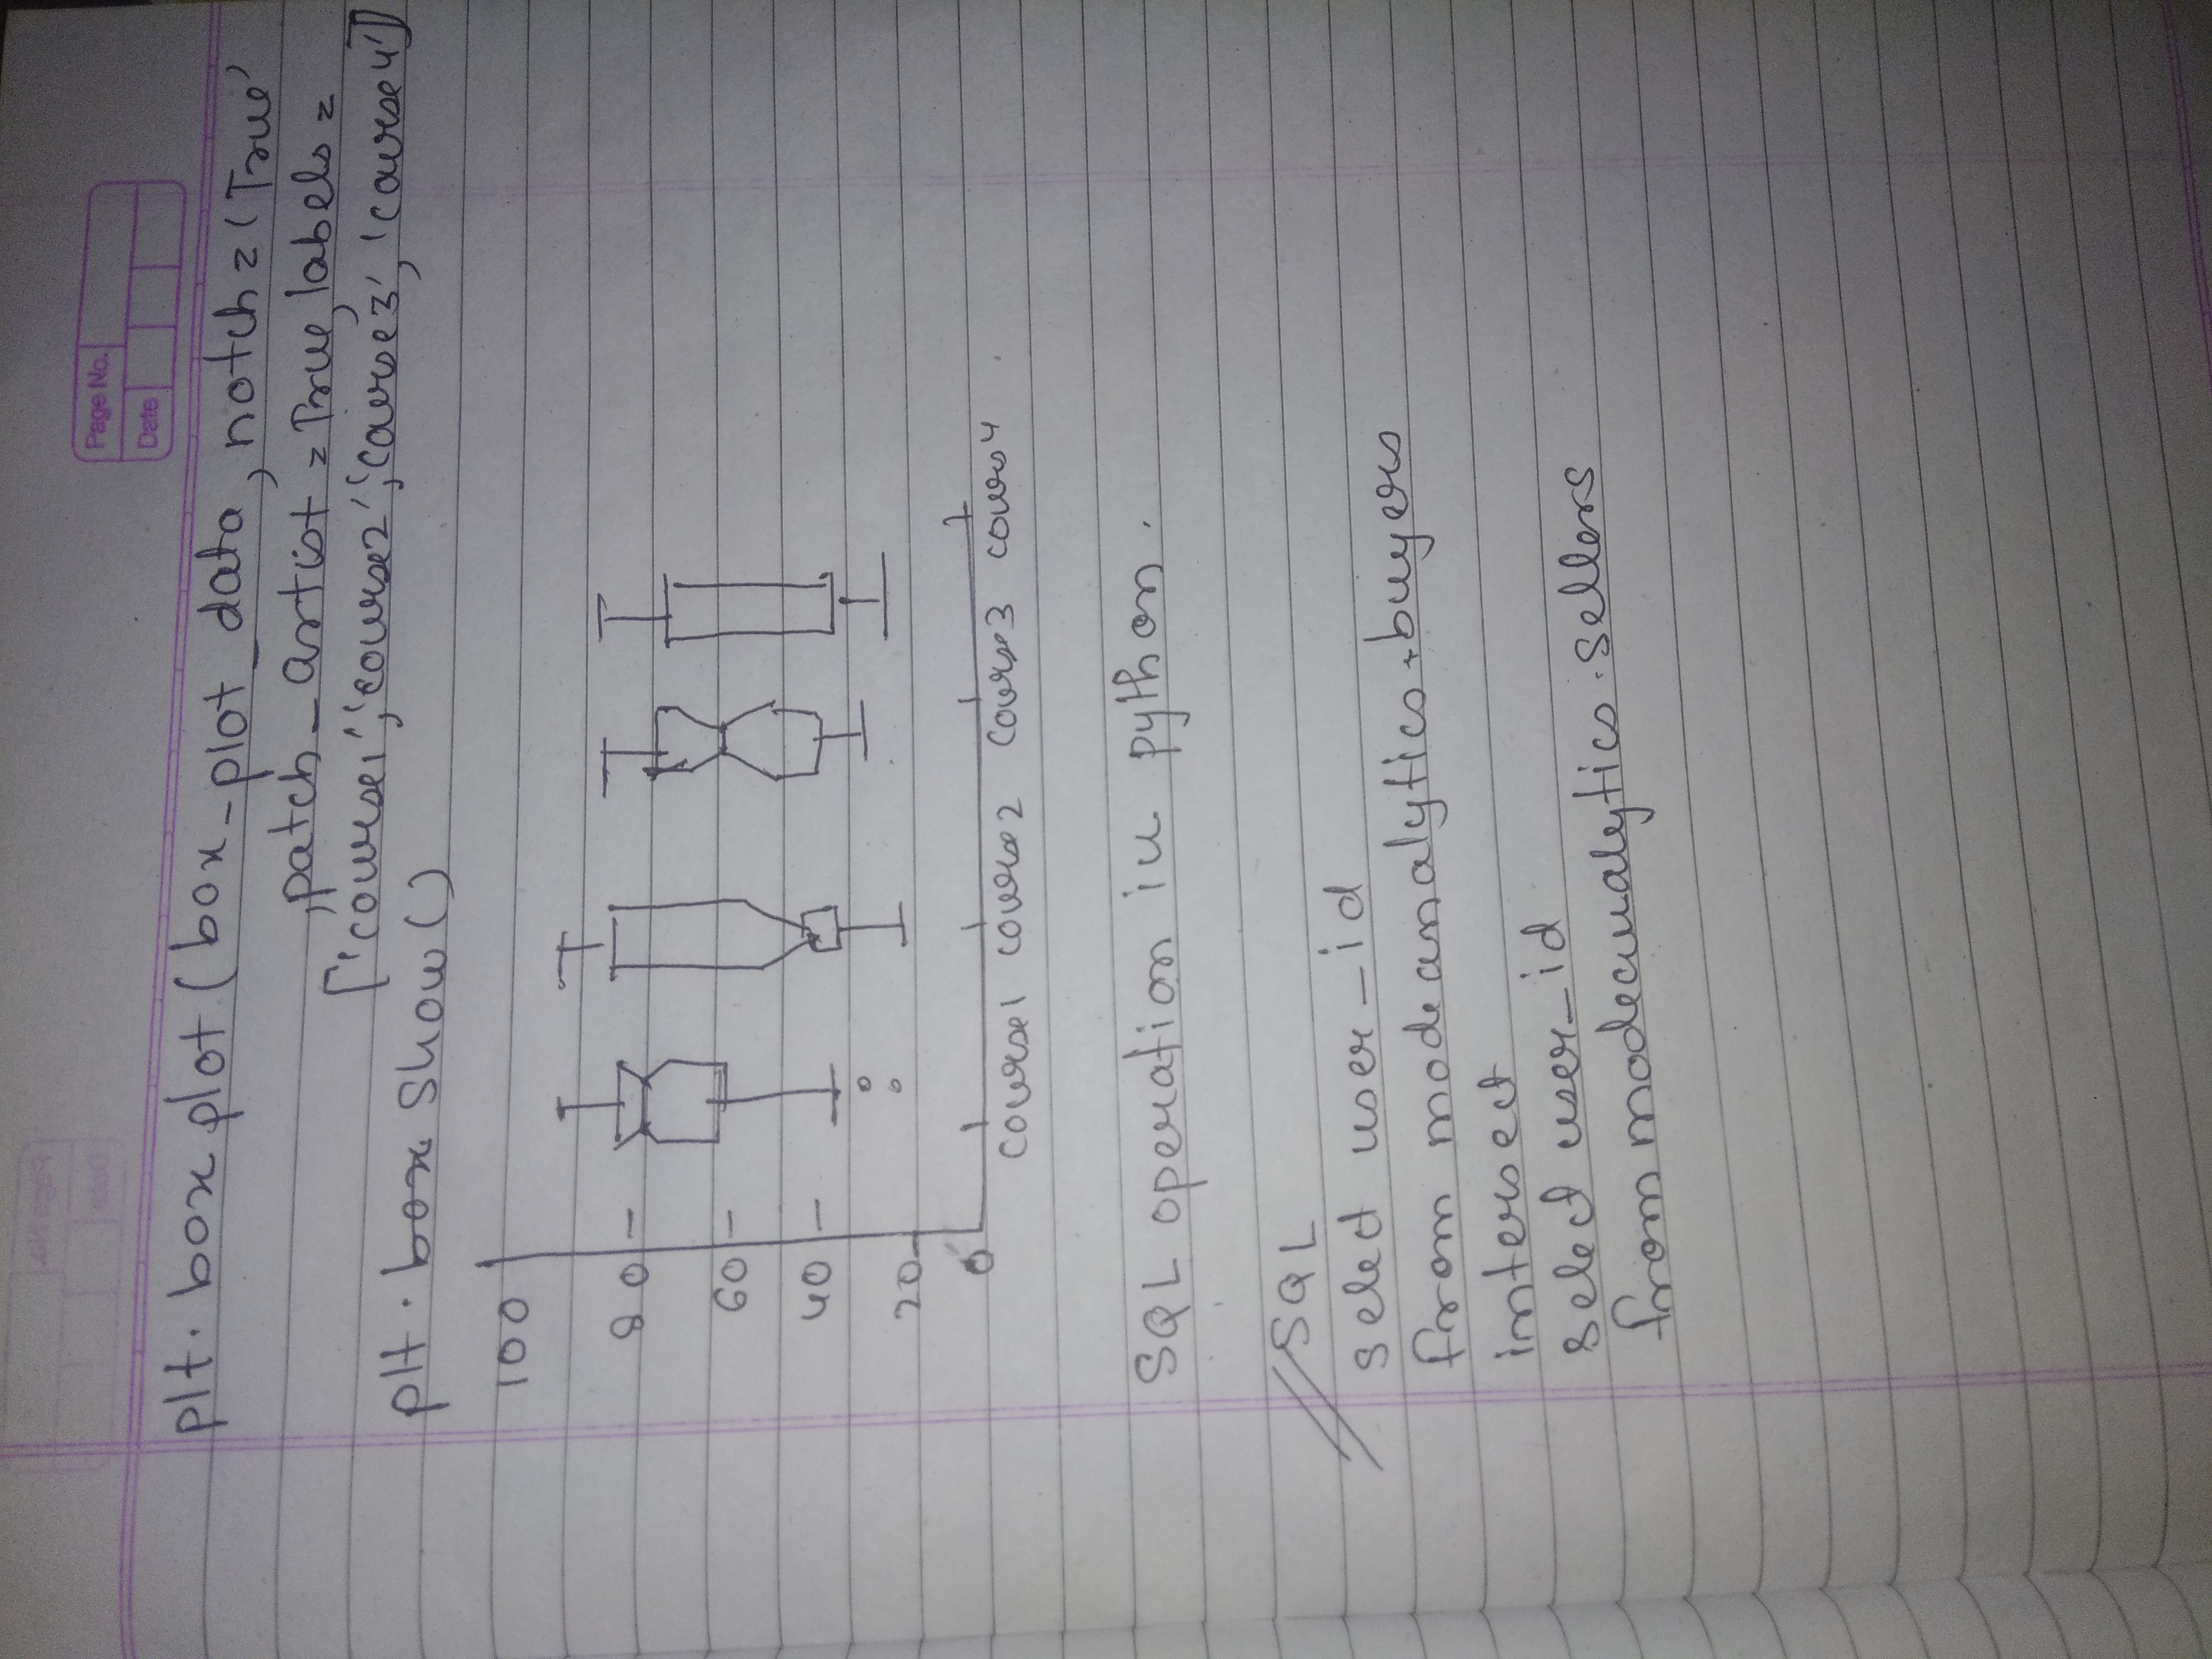 Page No.
Date
plt. box plot (box_plot_data, notch = 'True'
, patch_artist = True, labels =
['course1', 'course2', 'course3', 'course4'])
plt. box. Show()
100
80
60
40
20
0
course1 course2 course3 course4
SQL operation in python.
//SQL
select user_id
from modeanalytics.buyers
intersect
select user_id
from modeanalytics.sellers